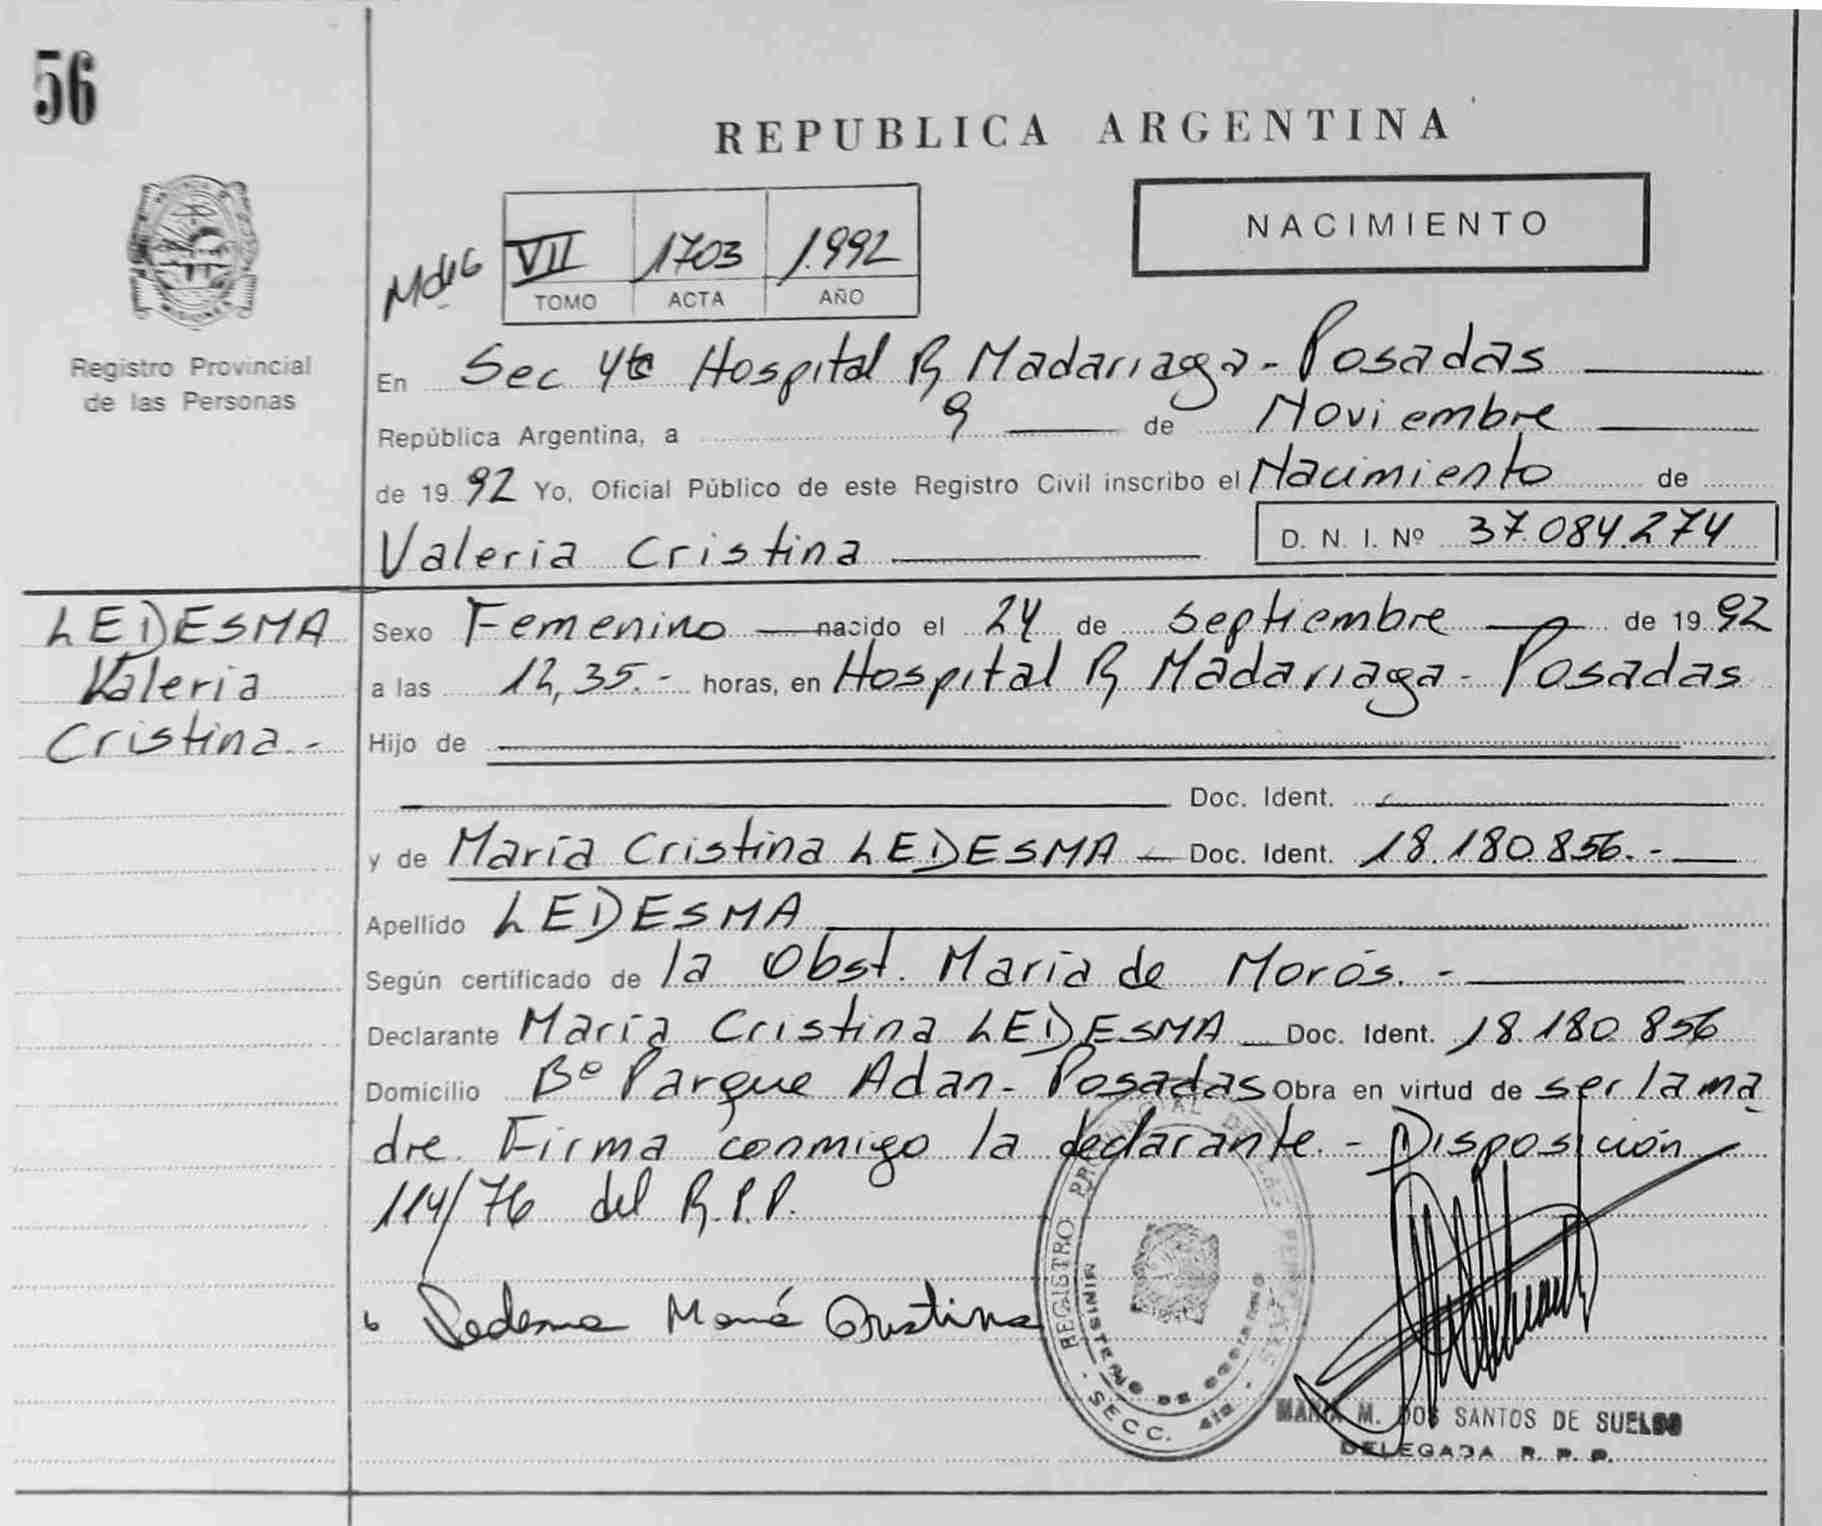 56
REPUBLICA ARGENTINA
NACIMIENTO
VII 1703 1.992
TOMO ACTA AÑO
Registro Provincial
de las Personas
En Sec 4ta Hospital R Madariaga - Posadas
República Argentina, a 9 de Noviembre
de 19 92 Yo, Oficial Público de este Registro Civil inscribo el Nacimiento de
Valeria Cristina D. N. I. Nº 37.084.274
LEDESMA
Valeria
Cristina.-
Sexo Femenino nacido el 24 de septiembre de 19 92
a las 12,35.- horas, en Hospital R Madariaga - Posadas
Hijo de
Doc. Ident.
y de María Cristina LEDESMA Doc. Ident. 18.180.856.-
Apellido LEDESMA
Según certificado de la Obst. María de Morós.-
Declarante María Cristina LEDESMA Doc. Ident. 18.180.856
Domicilio Bº Parque Adan - Posadas Obra en virtud de ser la ma
dre. Firma conmigo la declarante.- Disposición
114/76 del R.P.P.
Ledesma María Cristina
REGISTRO PROVINCIAL DE LAS PERSONAS
MINISTERIO DE GOBIERNO
SECC. 4ta
MARIA M. DOS SANTOS DE SUELDO
DELEGADA R. P. P.